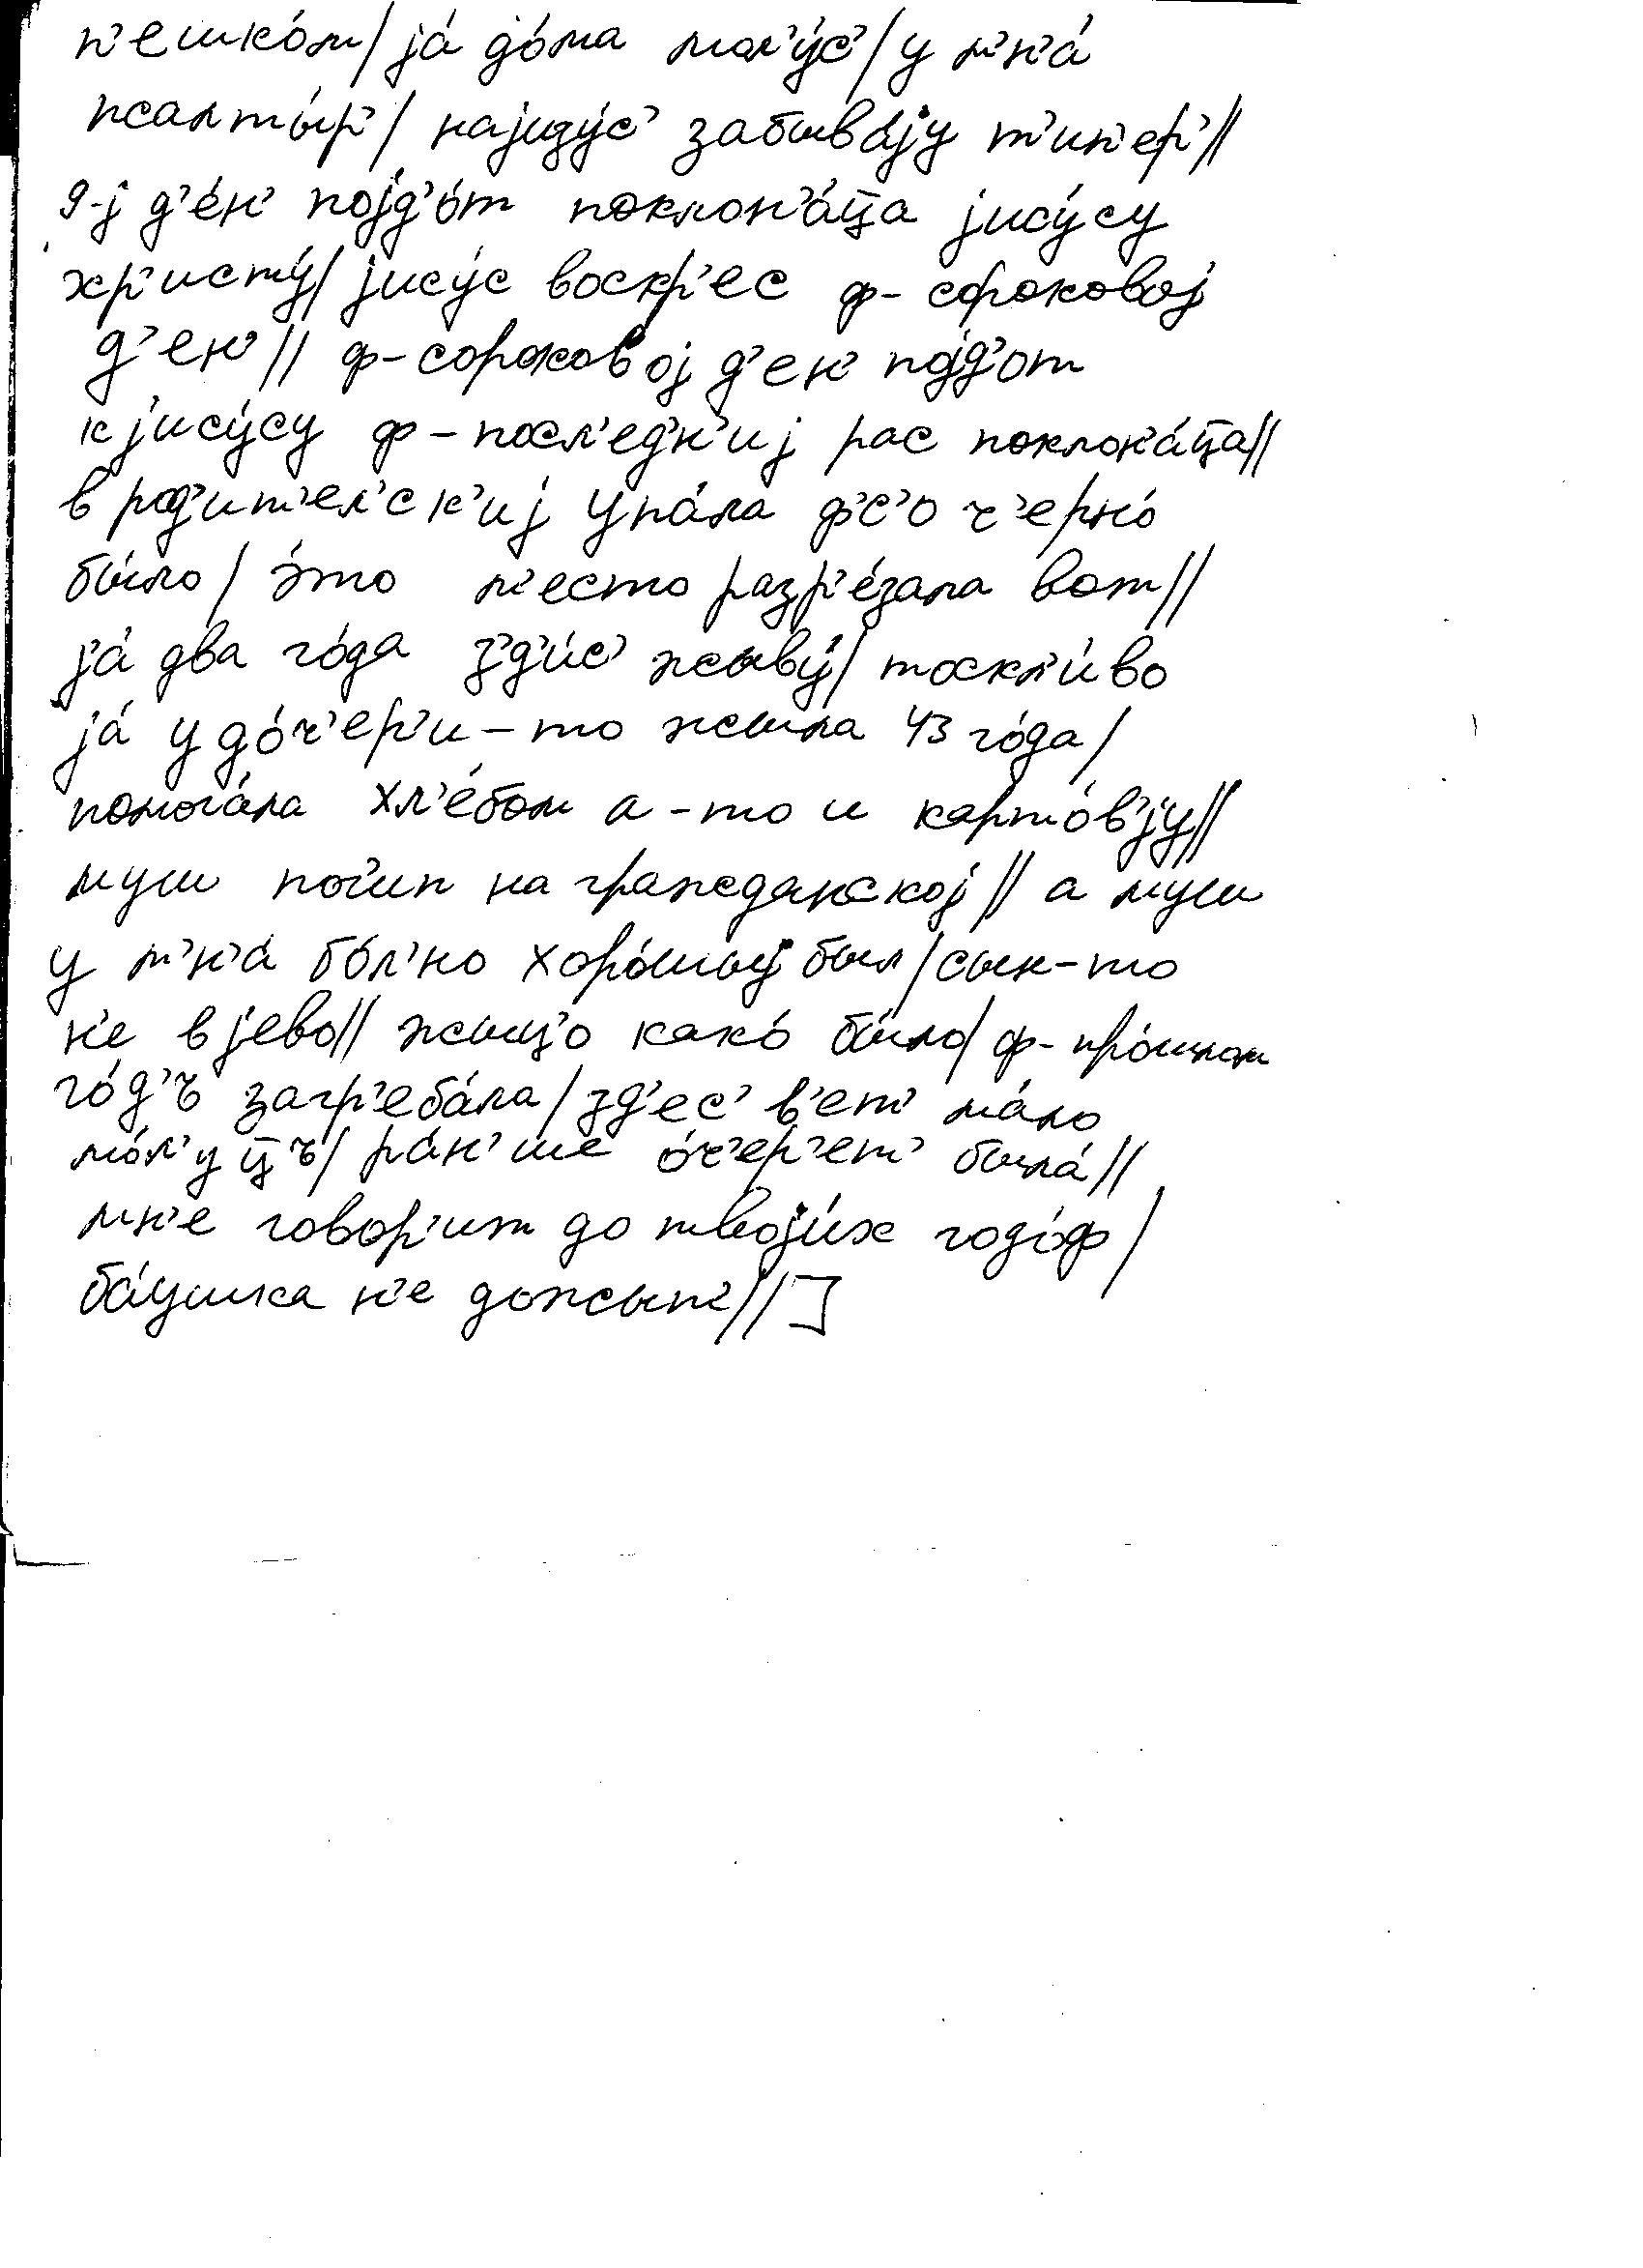 п'ешко́м/ jа́ до́ма мол'у́с'/ у м'н'а́
псалты́р'/ наjиду́с' забыва́jу т'ип'ер'//
9-j д'е́н' поjд'о́т поклон'а́ц̄а jису́су
хр'исту́/ jису́с воскр'ес ф-сороковоj
д'ен'// ф-сороковоj д'ен' поjд'от
к jису́су ф-посл'ед'н'иj рас поклон'а́ц̄а//
в род'ит'ел'ск'иj упа́ла ф'с'о ч'ерно́
бы́ло/ э́то м'есто разр'е́зала вот//
jа́ два го́да з'д'и́с' жыву́/ тоскл'и́во
jа́ у до́ч'ер'и-то жыла 43 го́да/
помога́ла хл'е́бом а-то и карто́в'jу//
муш пог'ип на гражданскоj// а муш
у м'н'а́ бо́л'но хоро́шыj был/ сын-то
н'е в jево// жыц'о како́ бы́ло/ ф-про́шлом
го́д'ъ загр'еба́ла/ зд'ес' в'ет' ма́ло
мо́л'уц̄ъ/ ра́н'ше о́ч'ер'ет' была́//
мн'е говор'ит до твоjи́х годо́ф/
ба́ушка н'е дожыт'//]